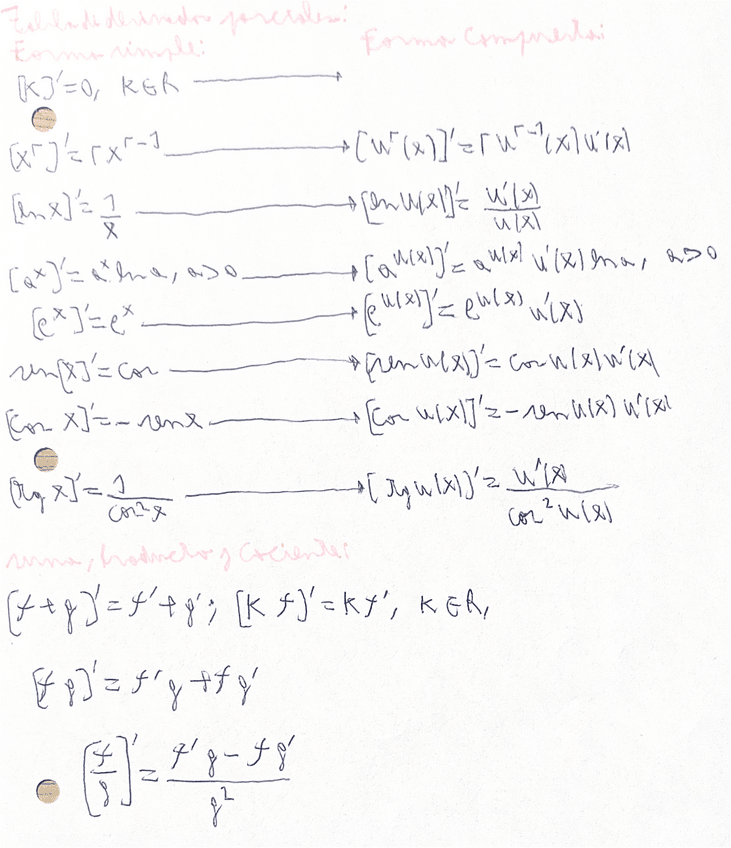 Tabla de derivadas parciales:
Forma simple: Forma Compuesta:
[K]'=0, K∈R ⟶
[x^r]'=r x^(r-1) ⟶ [u^r(x)]'=r u^(r-1)(x) u'(x)
[ln x]'=1/x ⟶ [ln u(x)]'=u'(x)/u(x)
[a^x]'=a^x ln a, a>0 ⟶ [a^u(x)]'=a^u(x) u'(x) ln a, a>0
[e^x]'=e^x ⟶ [e^u(x)]'=e^u(x) u'(x)
sen[x]'=cos ⟶ [sen u(x)]'=cos u(x) u'(x)
[cos x]'=-sen x ⟶ [cos u(x)]'=-sen u(x) u'(x)
[tg x]'=1/cos²x ⟶ [tg u(x)]'=u'(x)/cos² u(x)
suma, producto y Cociente:
[f+g]'=f'+g'; [K f]'=K f', K∈R,
[f g]'=f' g + f g'
[f/g]'=(f' g - f g')/g²